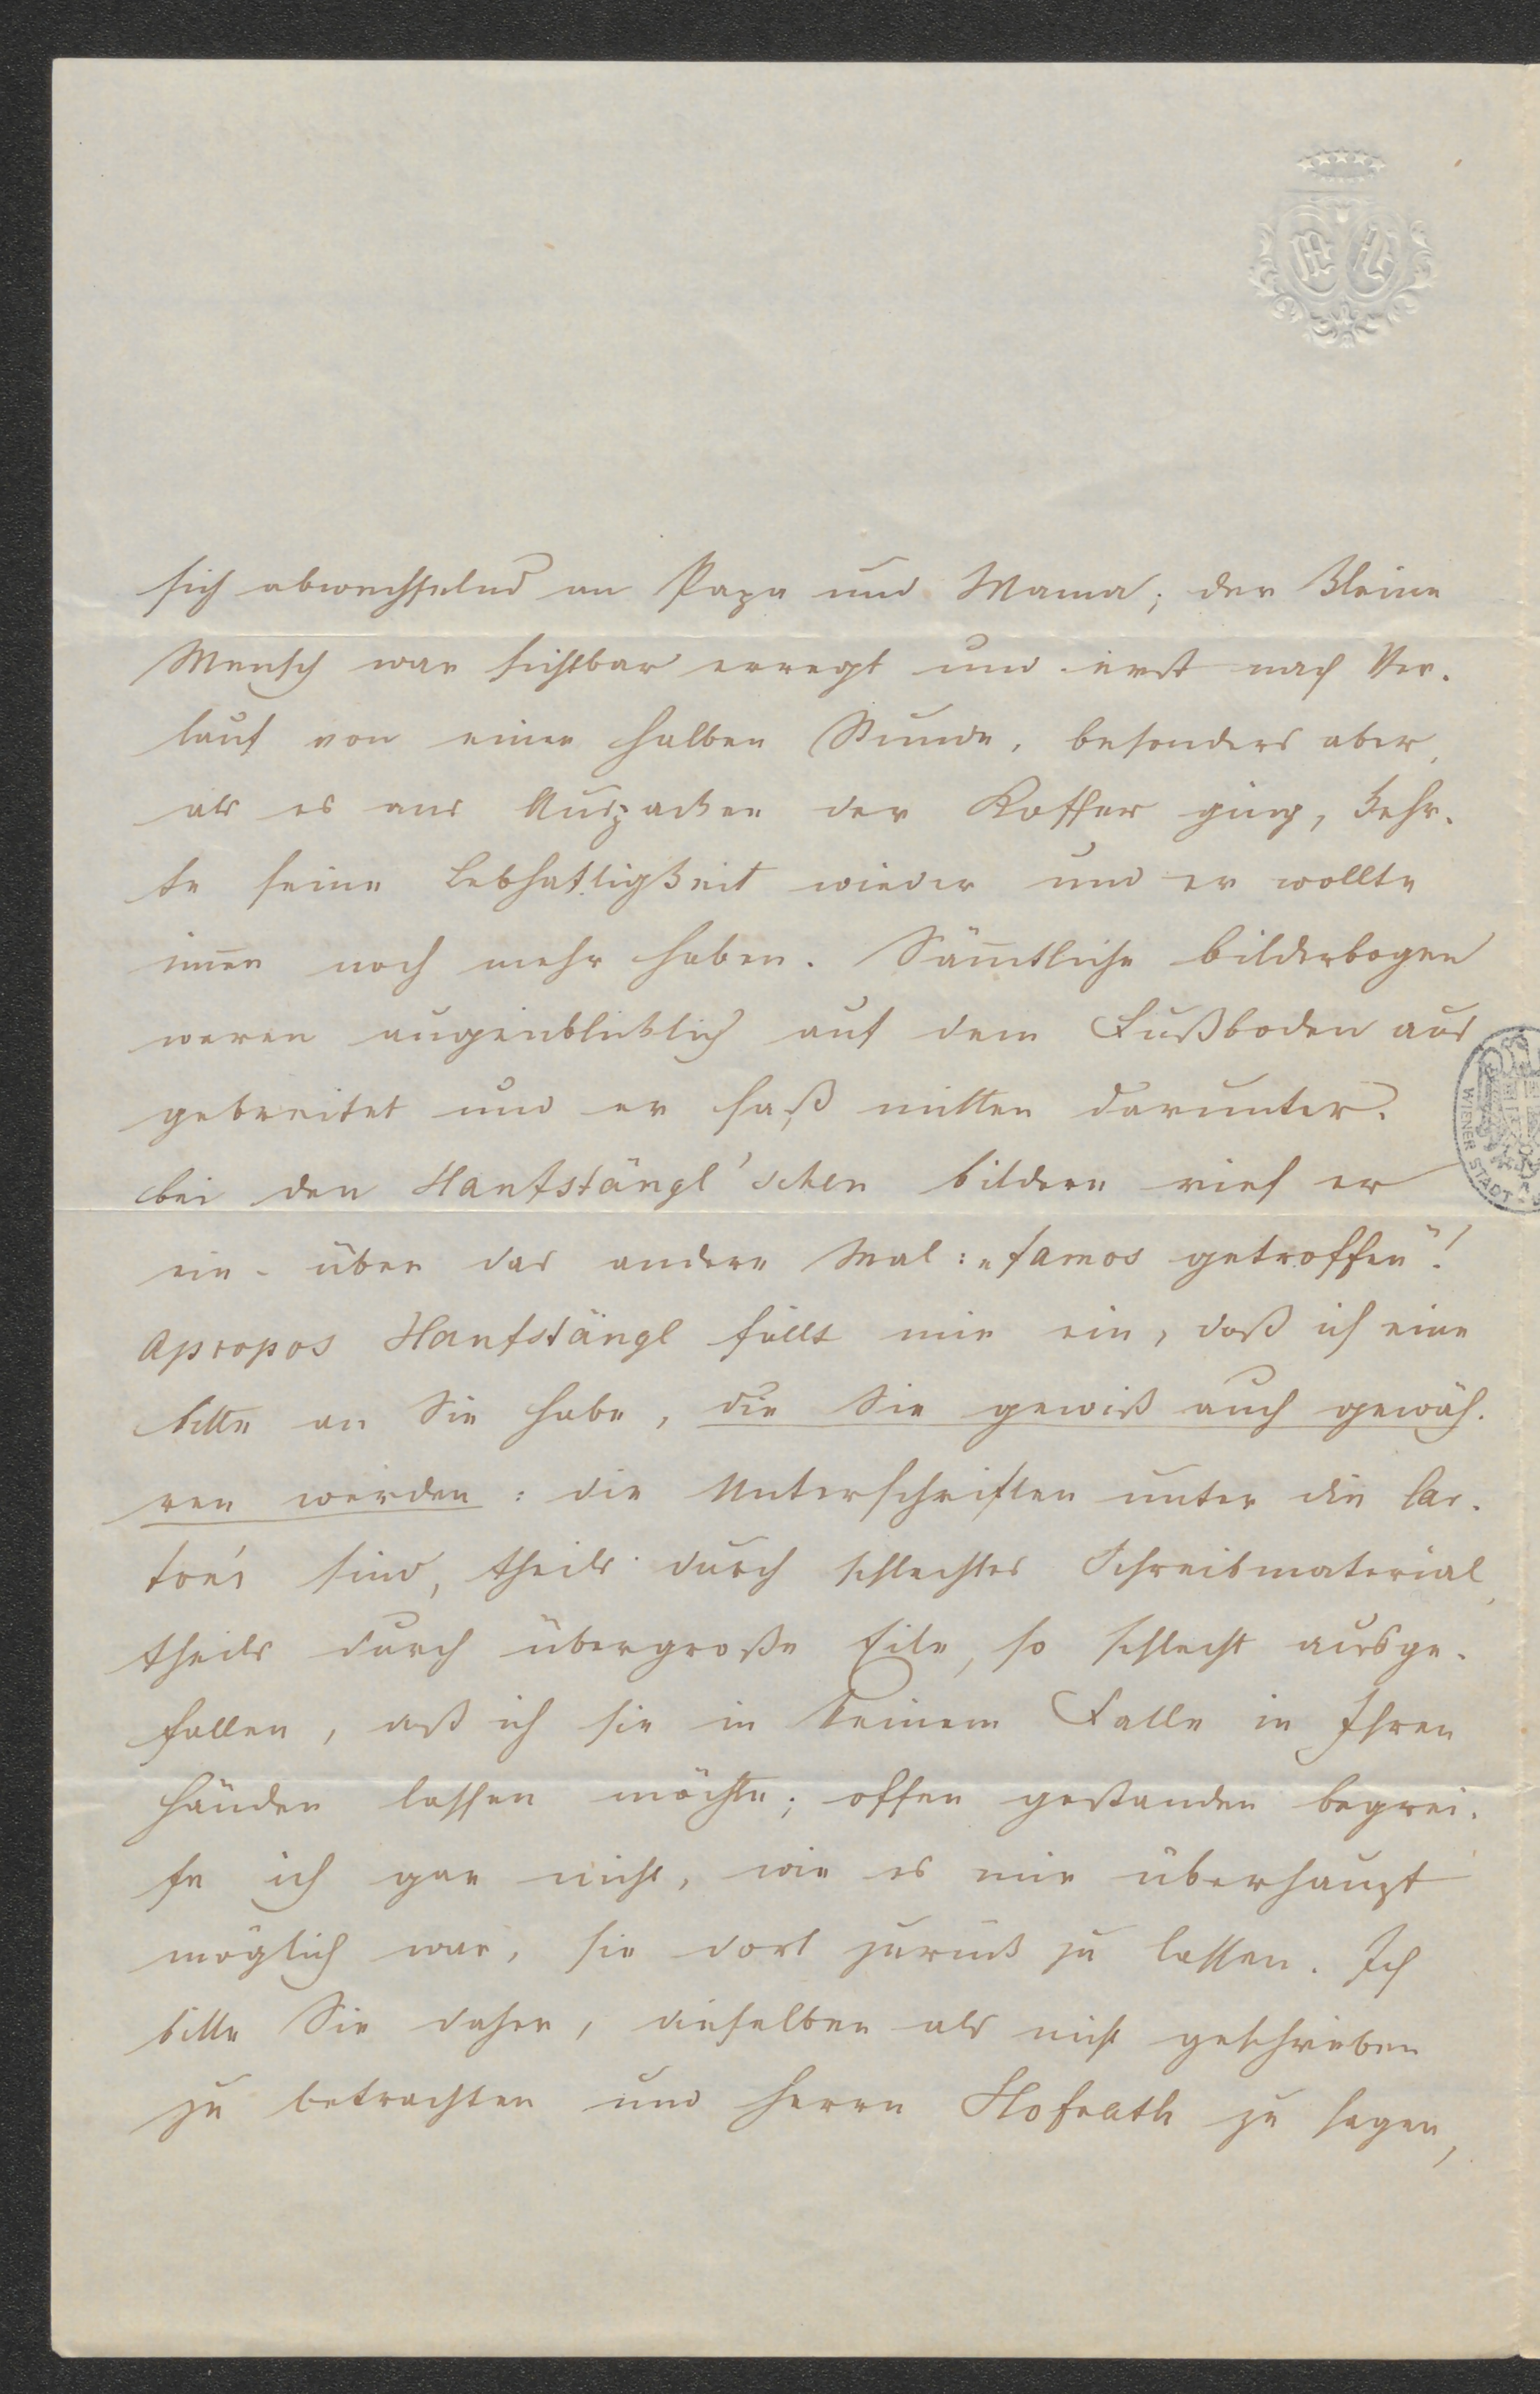 sich abwechselnd an Papa und Mama; der kleine
Mensch war sichtbar erregt und erst nach Ver-
lauf von einer halben Stunde, besonders aber,
als es ans Auspacken der Koffer ging, kehr-
te seine Lebhaftigkeit wieder und er wollte
im̄er noch mehr haben. Säm̄tliche Bilderbogen
waren augenblicklich auf dem Fußboden aus
gebreitet und er saß mitten darunter.
Bei den Hanfstängl'schen Bildern rief er
ein- über das andere Mal: „famos getroffen“!
Apropos Hanfstängl fällt mir ein, daß ich eine
Bitte an Sie habe, die Sie gewiß auch gewäh-
ren werden: die Unterschriften unter die Car-
ton's sind, theils durch schlechtes Schreibmaterial,
theils durch übergroße Eile, so schlecht ausge-
fallen, daß ich sie in keinem Falle in Ihren
Händen lassen möchte; offen gestanden begrei-
fe ich gar nicht, wie es mir überhaupt
möglich war, sie dort zurück zu lassen. Ich
bitte Sie daher, dieselben als nicht geschrieben
zu betrachten und Herrn Hofrath zu sagen,
WIENER STADT